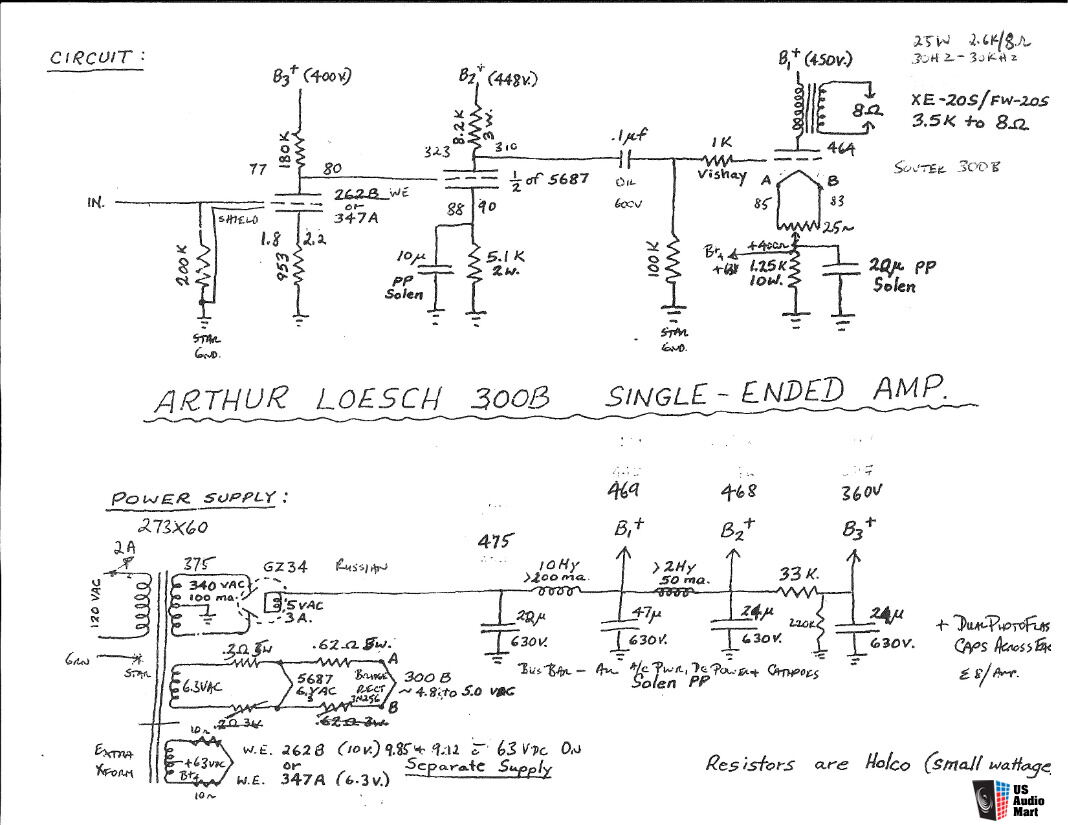 CIRCUIT:
25W 2.6K/8Ω
30HZ-30KHZ
B3+ (400V.)
B2+ (448V.)
B1+ (450V.)
XE-20S/FW-20S
3.5K to 8Ω
8Ω
180K
8.2K
3W.
.1µf
1K
Vishay
464
SOVTEK 300B
77
80
323
310
OIL
600V
A
B
85
83
IN.
SHIELD
262B WE
or
347A
½ of 5687
88
90
25~
1.8
2.2
200K
953
10µ
PP
Solen
5.1K
2W.
100K
Br4
1.25K
10W.
PP
Solen
STAR
GND.
STAR
GND.
ARTHUR LOESCH 300B SINGLE-ENDED AMP.
POWER SUPPLY:
273X60
469
468
360V
2A
375
GZ34
RUSSIAN
475
B1+
B2+
B3+
120 VAC
340 VAC
100 ma.
5VAC
3A.
10Hy
>200ma.
>2Hy
50 ma.
33K.
22µ
630V.
47µ
630V.
24µ
630V.
220K
24µ
630V.
GRN
STAR
.2Ω 3W
.62Ω 5W.
A
6.3VAC
5687
BRIDGE
RECT
300B
~4.8 to 5.0 VDC
B
.2Ω 3W.
.62Ω 3W.
BUS BAR - ALL A/C PWR, DC POWER + CATHODES
Solen PP
+ DUAL PHOTOFLAS
CAPS ACROSS EA
EXTRA
XFORM
10~
+63VDC
Br4
10~
W.E. 262B (10V.) 9.85 + 9.12 = 63 VDC ON
or
Separate Supply
W.E. 347A (6.3V.)
Resistors are Holco (small wattage
US
Audio
Mart